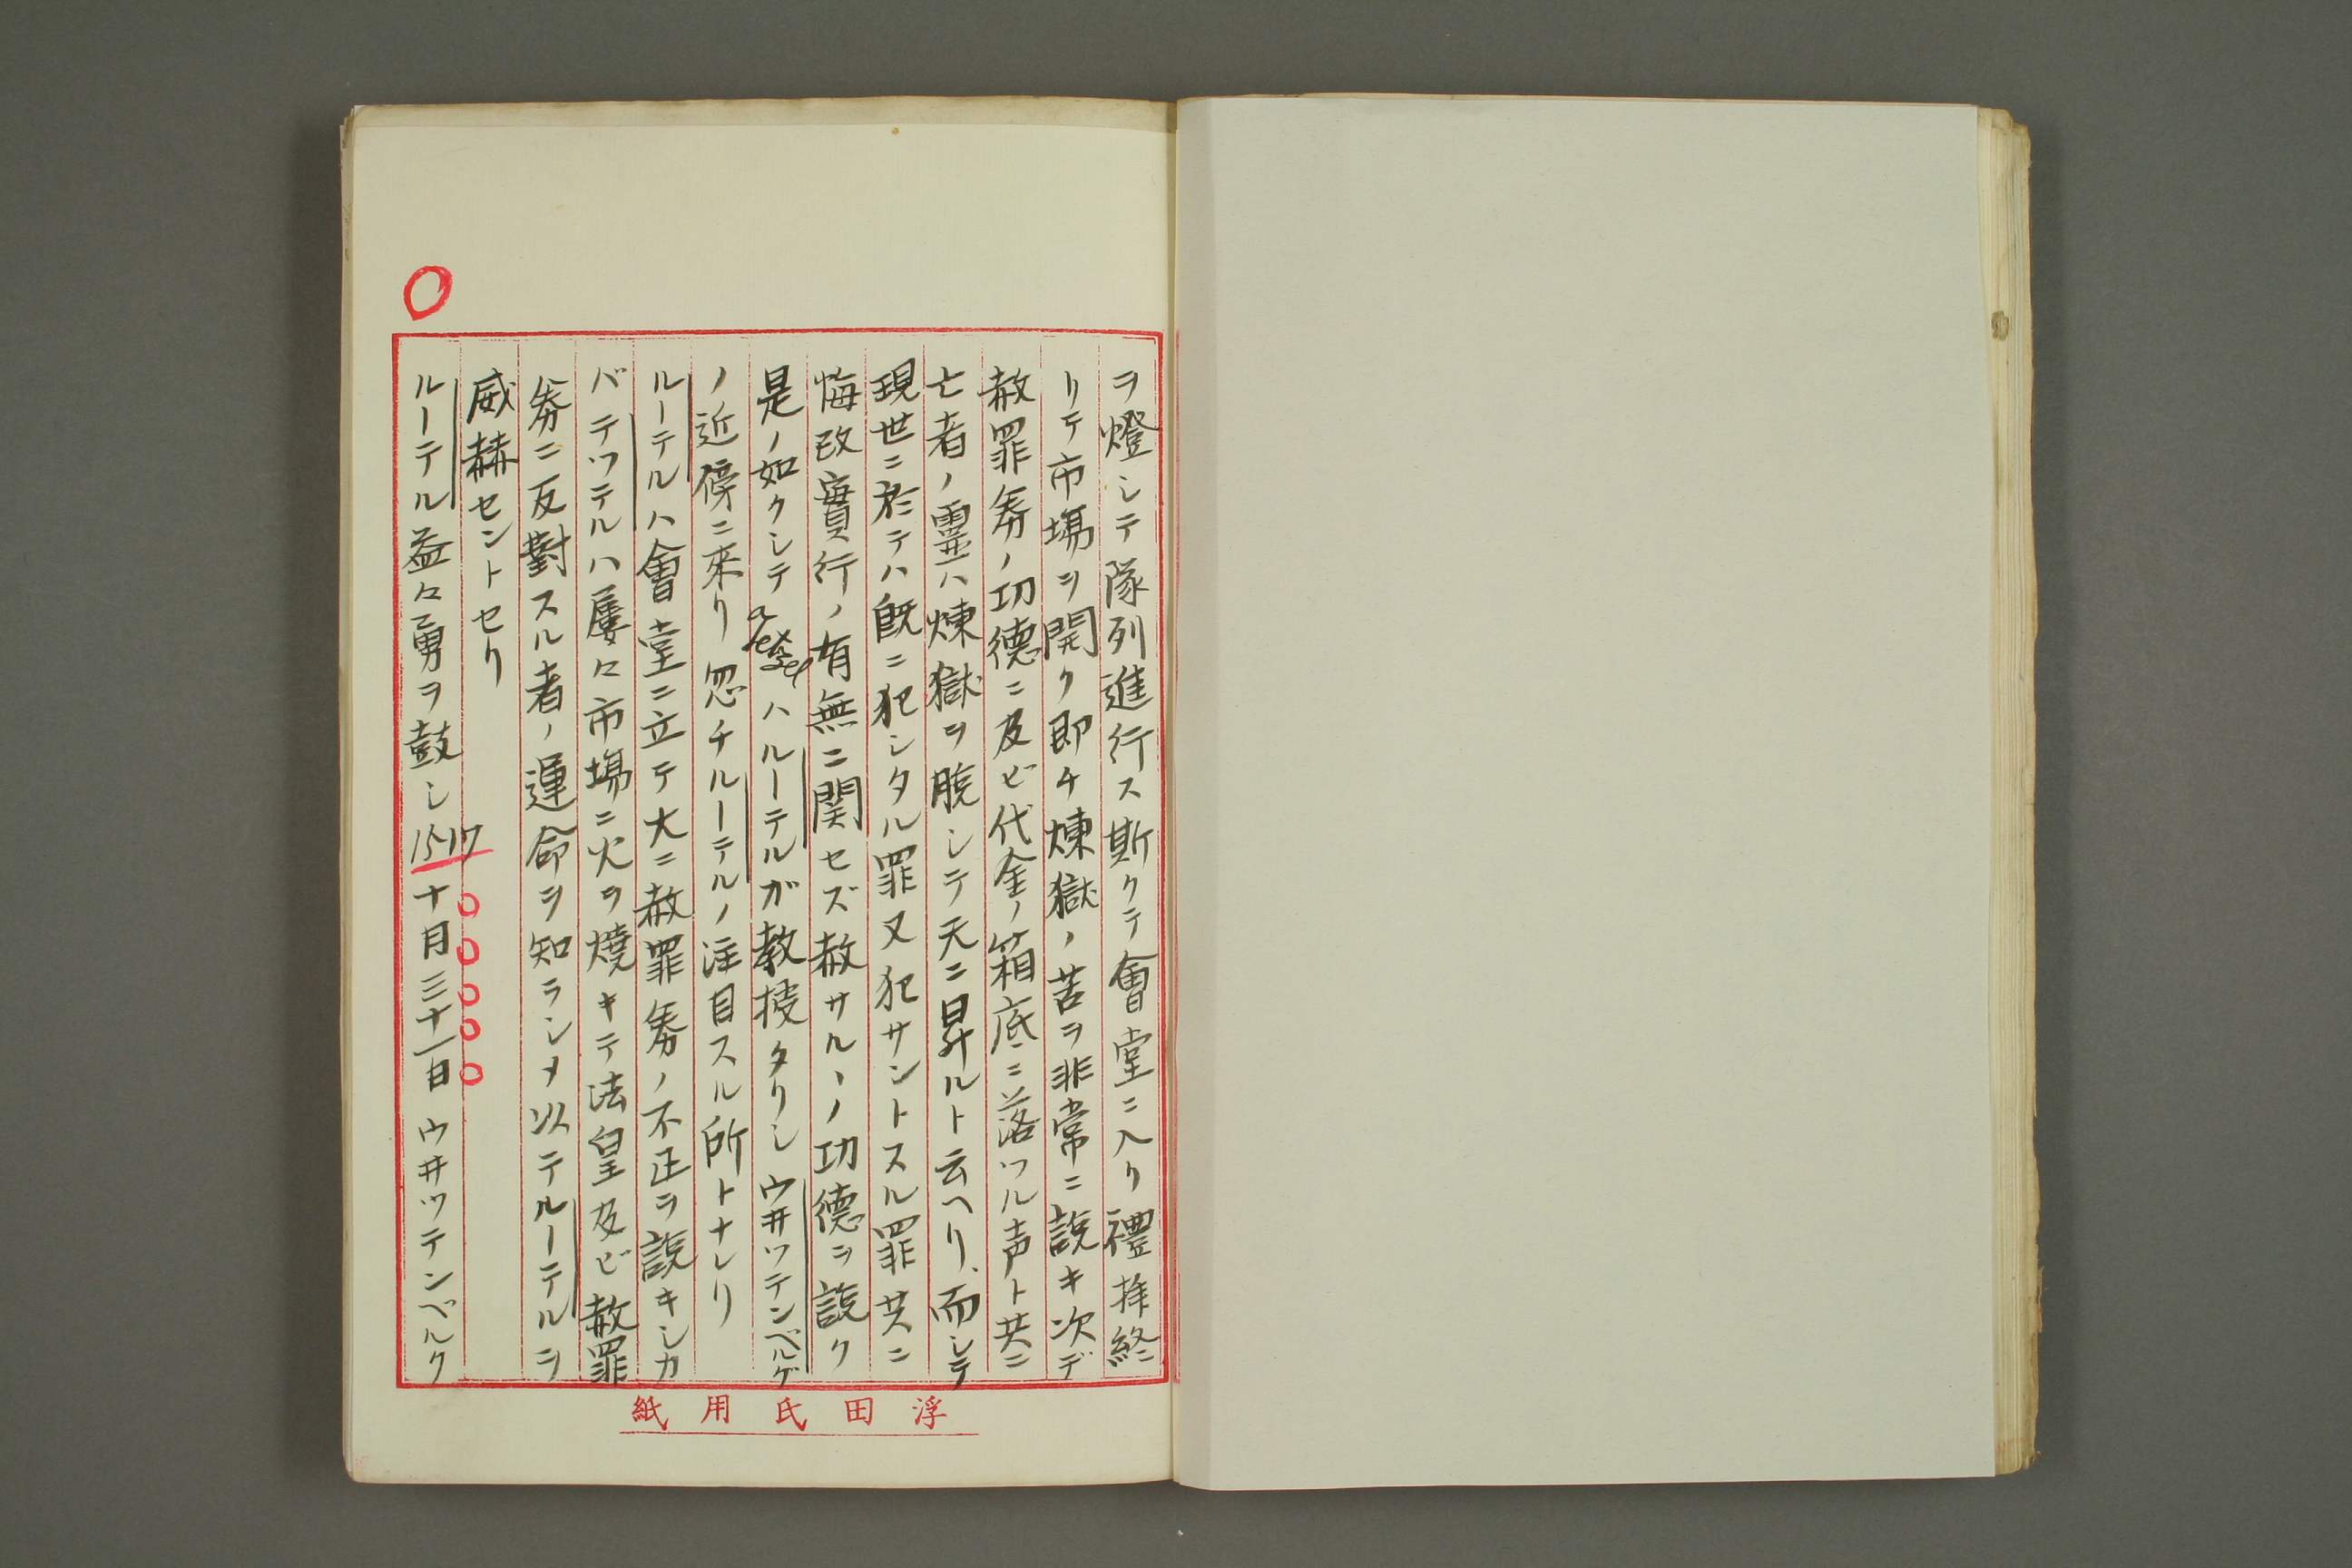 ヲ燈シテ隊列進行ス斯クテ會堂ニ入リ禮拝終
リテ市場ヲ開ク即チ煉獄ノ苦ヲ非常ニ説キ次デ
赦罪券ノ功德ニ及ビ代金ノ箱底ニ落ツル声ト共ニ
亡者ノ靈ハ煉獄ヲ脱シテ天ニ昇ルト云ヘリ、而シテ
現世ニ於テハ既ニ犯シタル罪又犯サントスル罪共ニ
悔改實行ノ有無ニ関セズ赦サルヽノ功德ヲ説ク
是ノ如クシテ ハルーテルガ教授タリシウ井ツテンベルゲ
ノ近傍ニ来リ忽チルーテルノ注目スル所トナレリ
ルーテルハ會堂ニ立テ大ニ赦罪券ノ不正ヲ説キシカ
バテツテルハ屢々市場ニ火ヲ燒キテ法皇及ビ赦罪
券ニ反對スル者ノ運命ヲ知ラシメ以テルーテルヲ
威赫セントセリ
ルーテル益々勇ヲ鼓シ1517十月三十一日ウ井ツテンベルク
浮田氏用紙